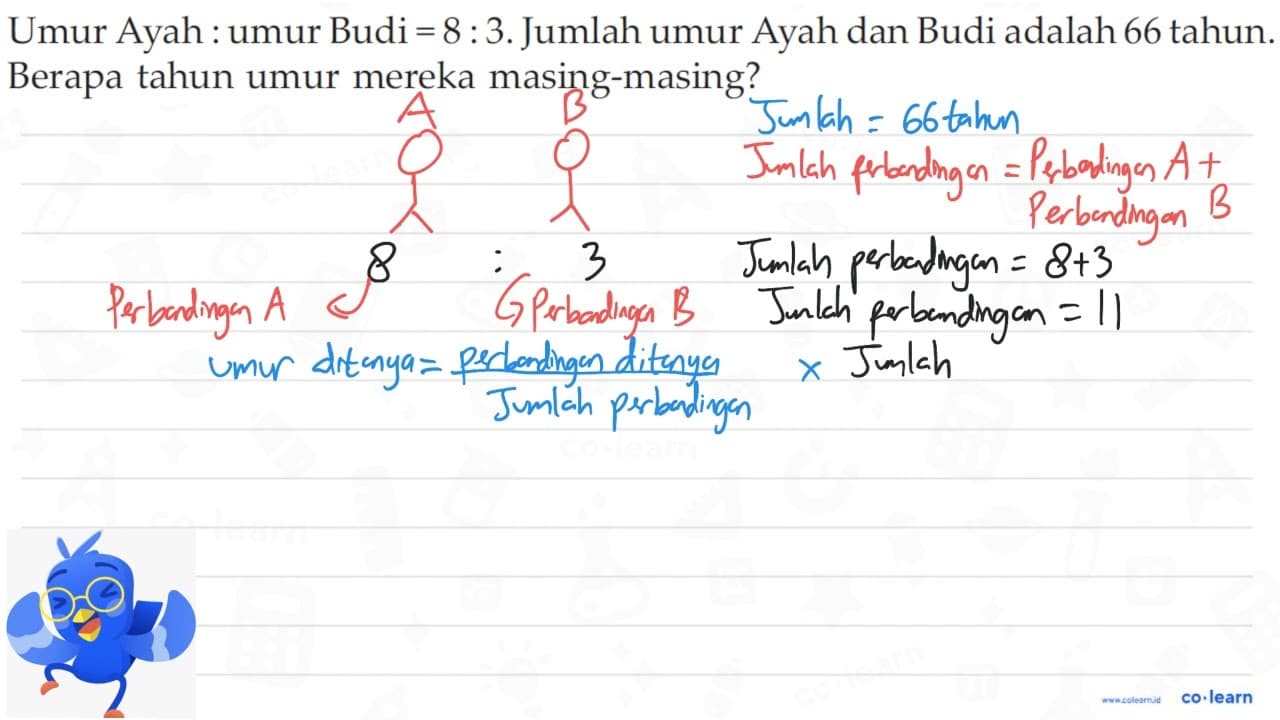 Umur Ayah : umur Budi = 8 : 3. Jumlah umur Ayah dan Budi adalah 66 tahun.
Berapa tahun umur mereka masing-masing?
A B
Jumlah = 66 tahun
Jumlah perbandingan = Perbandingan A +
Perbandingan B
8 : 3
Jumlah perbandingan = 8+3
Perbandingan A
Perbandingan B
Jumlah perbandingan = 11
umur ditanya = perbandingan ditanya × Jumlah
Jumlah perbandingan
www.colearn.id co·learn